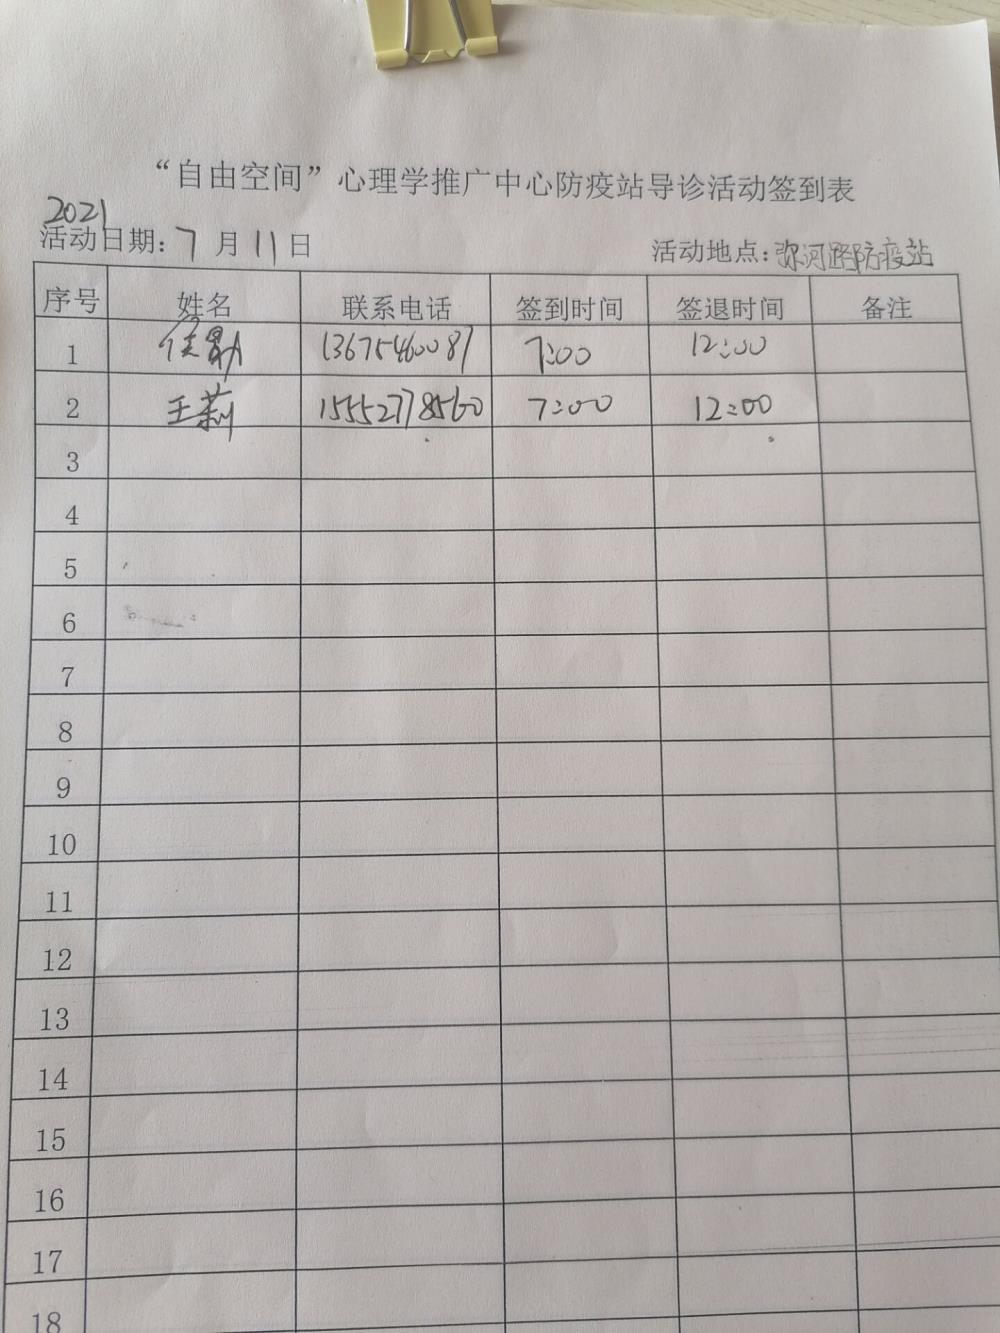 “自由空间”心理学推广中心防疫站导诊活动签到表
2021
活动日期: 7 月 11 日 活动地点: 弥河路防疫站
序号 姓名 联系电话 签到时间 签退时间 备注
1 侯勋 13675460087 7:00 12:00
2 王莉 15552778560 7:00 12:00
3
4
5
6
7
8
9
10
11
12
13
14
15
16
17
18